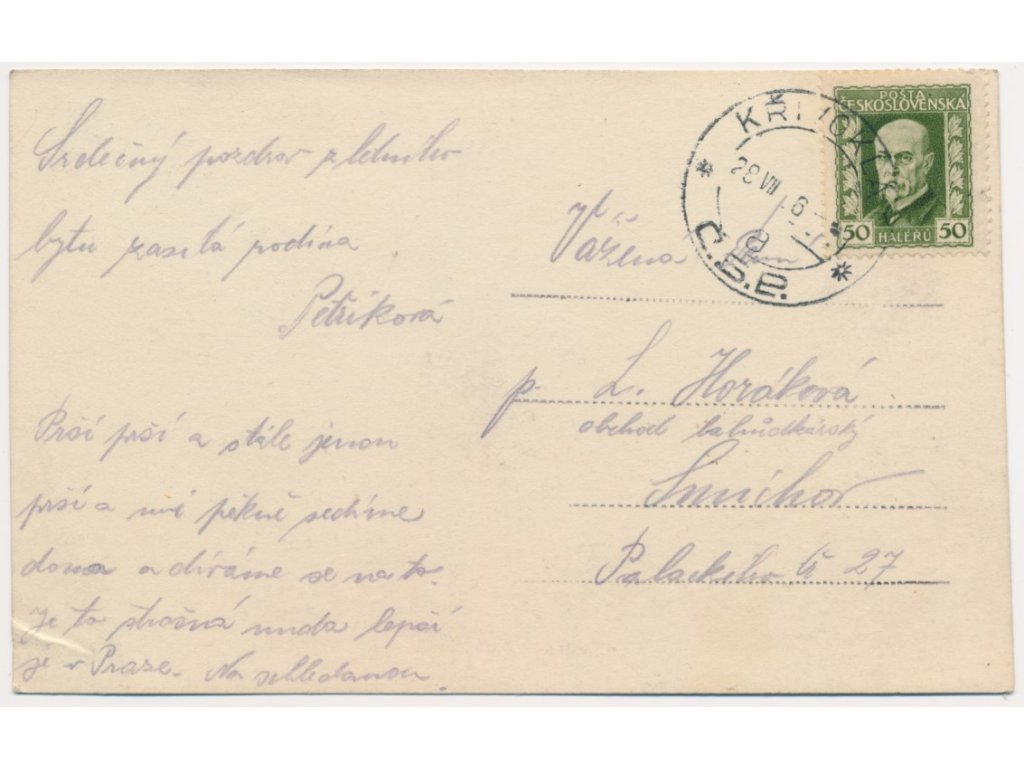 Srdečný pozdrav z letního
bytu zasílá rodina
Petříková
Prší prší a stále jenom
prší a mi pěkně sedíme
doma a díváme se na to.
Je to strašná nuda lepší
je v Praze. Na shledanou.
POŠTA
ČESKOSLOVENSKÁ
50 HALÉŘŮ 50
28 VII
Č.S.P.
Vážená
p. L. Horáková
obchod lahůdkářský
Smíchov
Palackého č 27